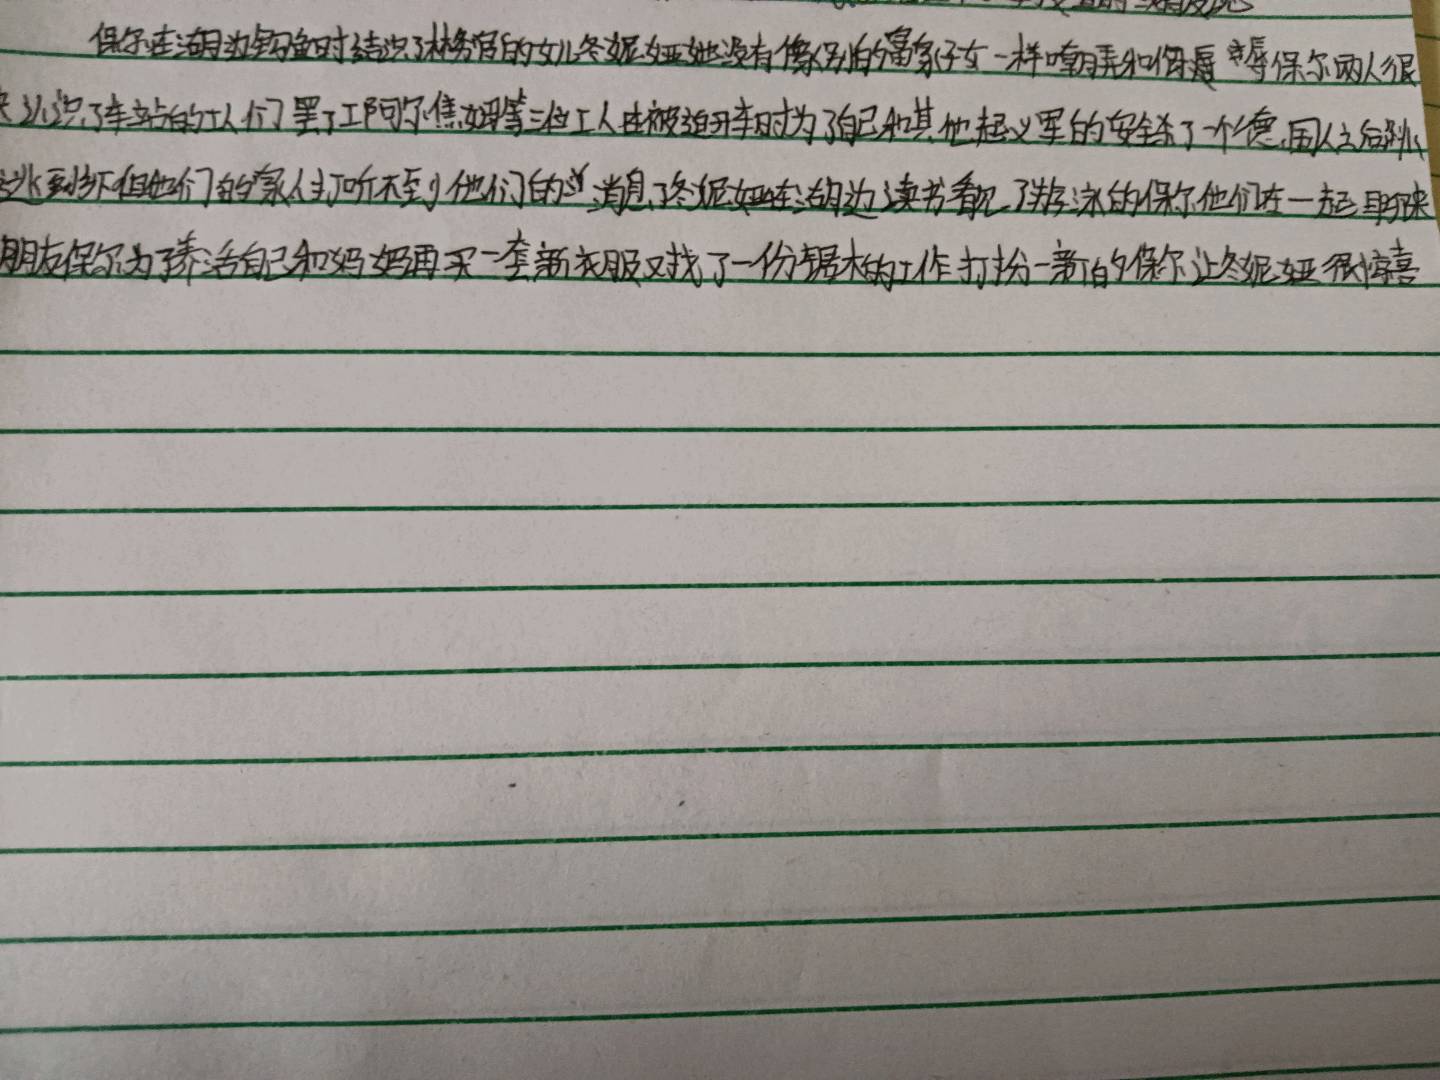 保尔在湖边钓鱼时结识了林务官的女儿冬妮娅她没有像别的富家子女一样嘲弄和侮辱保尔两人很
认识了车站的工人们罢了工阿尔焦姆等三位工人在被迫开车时为了自己和其他起义军的安全杀了一个德国人之后跳
逃到乡下但他们的家人打听不到他们的消息了冬妮娅在湖边读书看见了游泳的保尔他们在一起聊来
朋友保尔为了养活自己和妈妈再买一套新衣服又找了一份锯木的工作打扮一新的保尔让冬妮娅很惊喜